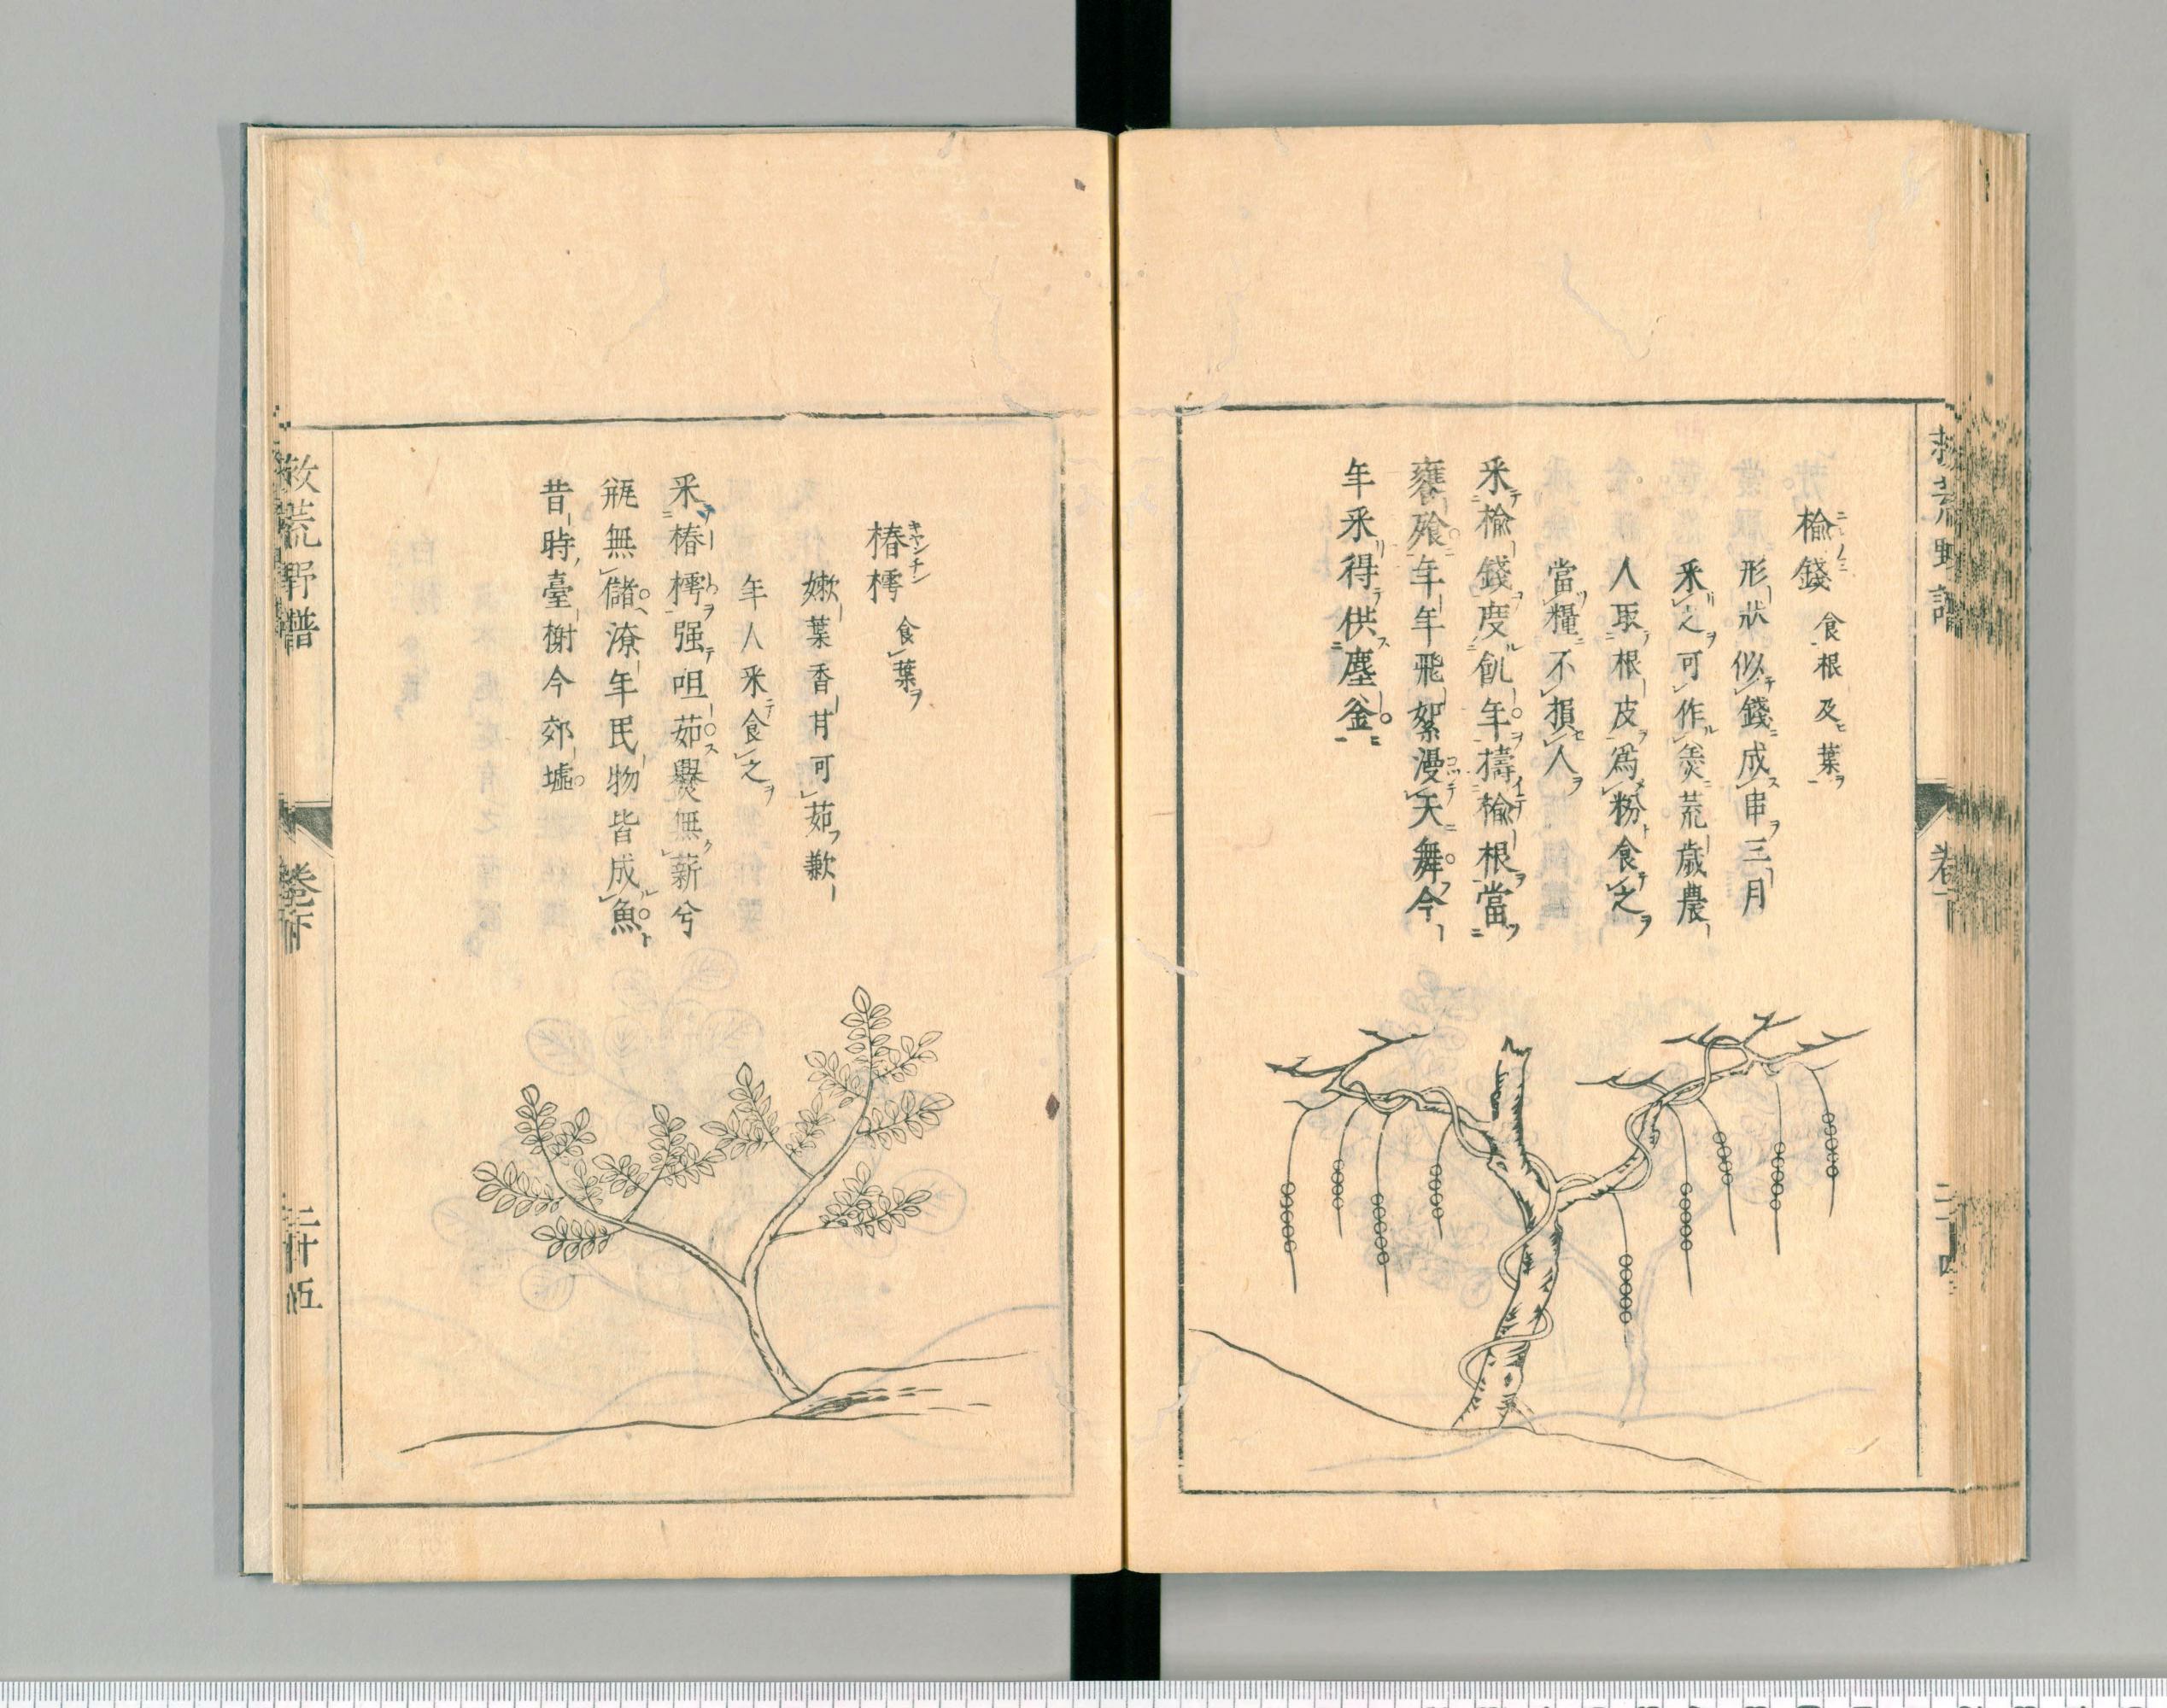 榆錢 食根及葉
形狀似錢成串三月
采之可作羮荒歲農
人取根皮爲粉食之
當糧不損人
采榆錢度飢年擣榆根當
饔飱年年飛絮漫天舞今
年采得供塵釜
救荒野譜
卷
椿樗 食葉
嫩葉香甘可茹歉
年人采食之
采椿樗强咀茹爨無薪兮
瓶無儲潦年民物皆成魚
昔時臺榭今郊墟
救荒野譜
二十五